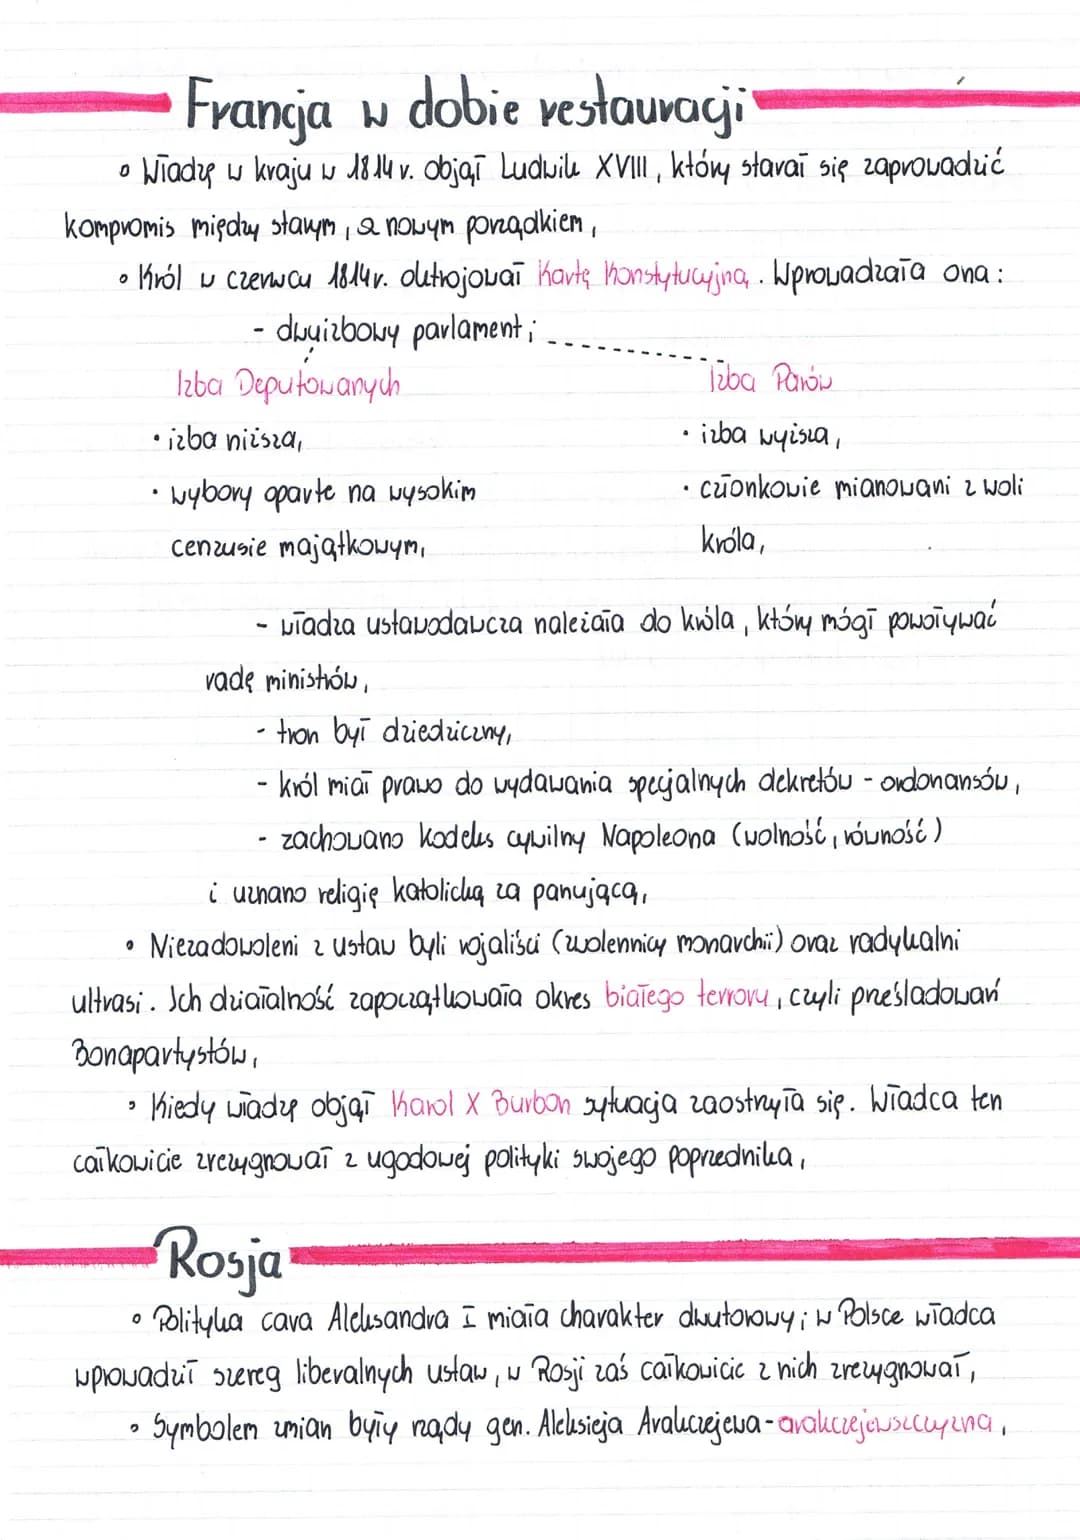 Francja w dobie restauracji
• Władzę w kraju w 1814 r. objął Ludwik XVIII, który starał się zaprowadzić
kompromis między starym, a nowym porządkiem,
• Król w czerwcu 1814 r. oktrojował Kartę Konstytucyjną. Wprowadzała ona:
- dwuizbowy parlament;
Izba Deputowanych
Izba Parów
• izba niższa,
• izba wyższa,
• wybory oparte na wysokim
• członkowie mianowani z woli
cenzusie majątkowym,
króla,
- władza ustawodawcza należała do króla, który mógł powoływać
radę ministrów,
- tron był dziedziczny,
- król miał prawo do wydawania specjalnych dekretów - ordonansów,
- zachowano kodeks cywilny Napoleona (wolność, równość)
i uznano religię katolicką za panującą,
• Niezadowoleni z ustaw byli rojaliści (zwolennicy monarchii) oraz radykalni
ultrasi. Ich działalność zapoczątkowała okres białego terroru, czyli prześladowań
Bonapartystów,
• Kiedy władzę objął Karol X Burbon sytuacja zaostrzyła się. Władca ten
całkowicie zrezygnował z ugodowej polityki swojego poprzednika,
Rosja
• Polityka cara Aleksandra I miała charakter dwutorowy; w Polsce władca
wprowadził szereg liberalnych ustaw, w Rosji zaś całkowicie z nich zrezygnował,
• Symbolem zmian były rządy gen. Aleksieja Arakczejewa - arakczejewszczyzna,